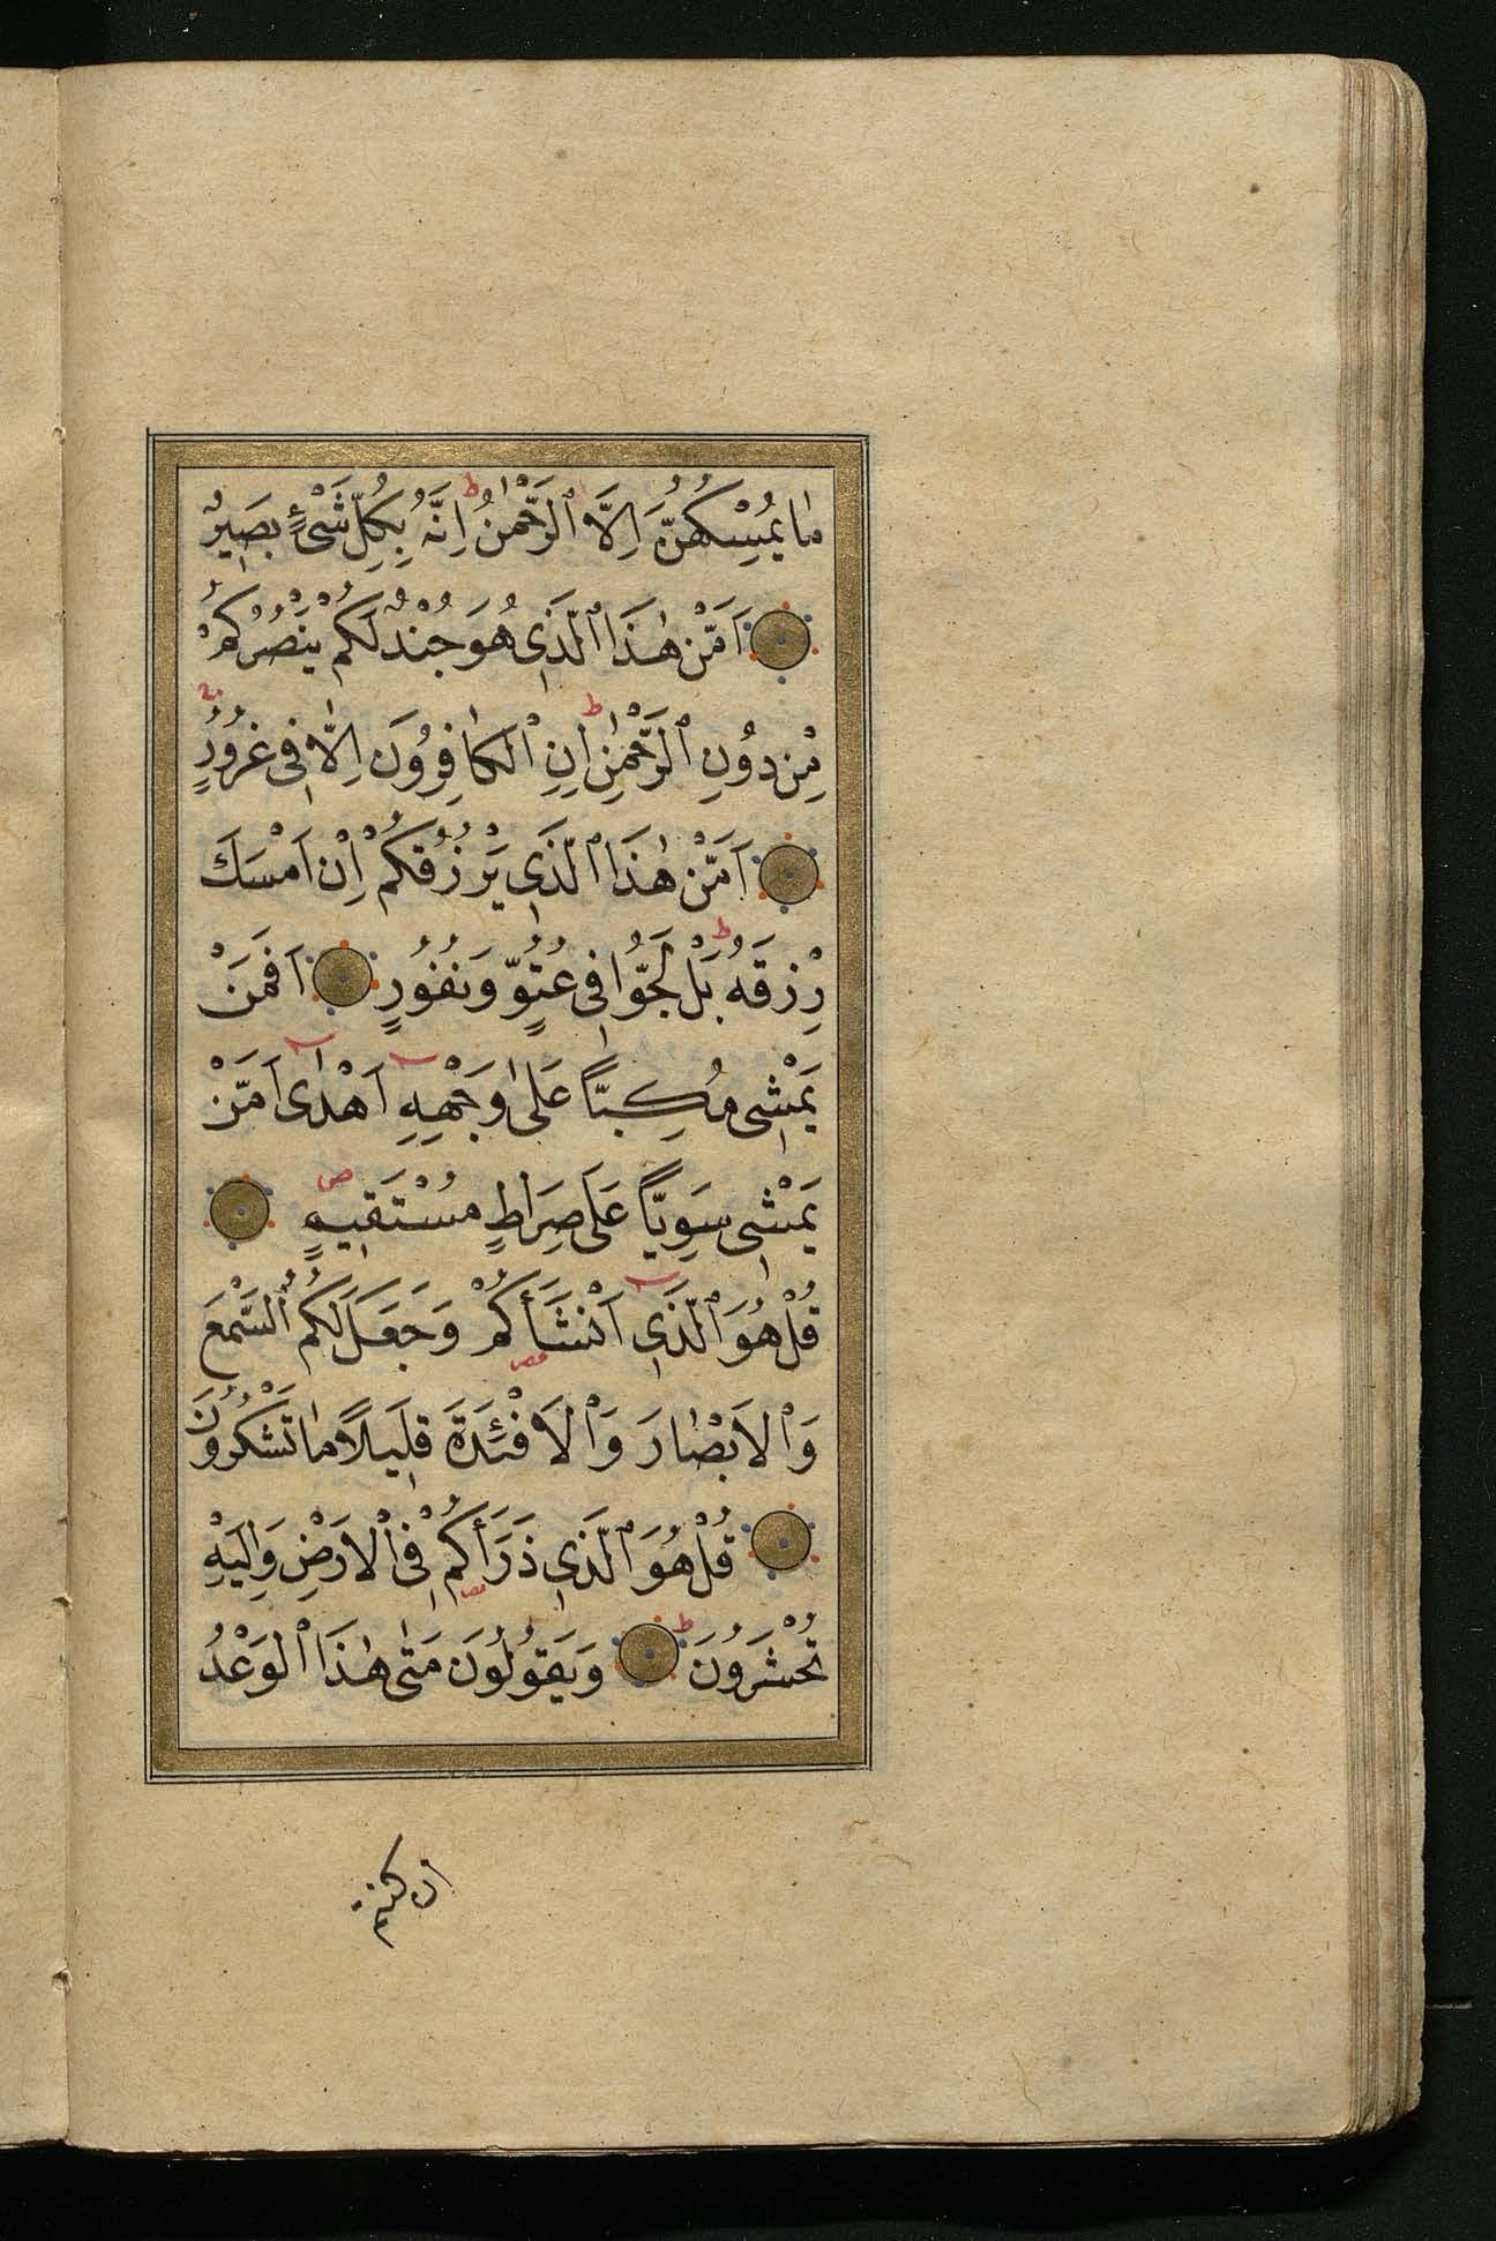 مٰا يُمْسِكُهُنَّ اِلَّا الرَّحْمٰنُ ط اِنَّهُ بِكُلِّ شَىْءٍ بَصِيرٌ
اَمَّنْ هٰذَا الَّذِى هُوَ جُنْدٌ لَكُمْ يَنْصُرُكُمْ
مِنْ دُوُنِ الرَّحْمٰنِ ط اِنِ الْكٰافِرُوُنَ اِلّٰا فِى غُرُوُرٍ
اَمَّنْ هٰذَا الَّذِى يَرْزُقُكُمْ اِنْ اَمْسَكَ
رِزْقَهُ ط بَلْ لَجُّوُا فِى عُتُوٍّ وَنُفُوُرٍ اَفَمَنْ
يَمْشِى مُكِبّاً عَلىٰ وَجْهِهِ اَهْدىٰ اَمَّنْ
يَمْشِى سَوِيّاً عَلىٰ صِرَاطٍ مُسْتَقِيمٍ ص
قُلْ هُوَ الَّذِى اَنْشَأَكُمْ وَجَعَلَ لَكُمُ السَّمْعَ
وَالْاَبْصٰارَ وَالْاَفْئِدَةَ قَلِيلاً مٰا تَشْكُرُوُنَ
قُلْ هُوَ الَّذِى ذَرَأَكُمْ فِى الْاَرْضِ وَاِلَيْهِ
تُحْشَرُوُنَ ط وَيَقُوُلُوُنَ مَتىٰ هٰذَا الْوَعْدُ
ان كنتم